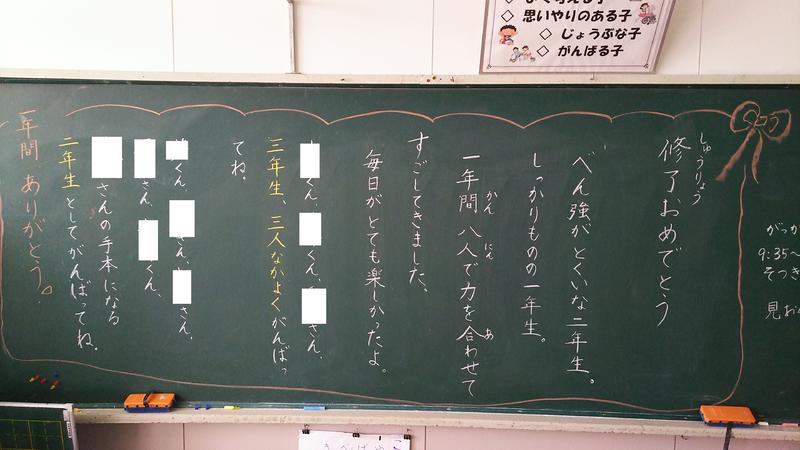 思いやりのある子
じょうぶな子
がんばる子
しゅうりょう
修了おめでとう
べん強がとくいな二年生。
しっかりものの一年生。
かん にん あ
一年間 八人で力を合わせて
すごしてきました。
毎日がとても楽しかったよ。
くん、 くん、 さん、
三年生、三人なかよくがんばっ
てね。
くん、 さん、 さん、
さん、 くん、
さんの手本になる
二年生としてがんばってね。
一年間 ありがとう。
9:35～
そつぎ
見お